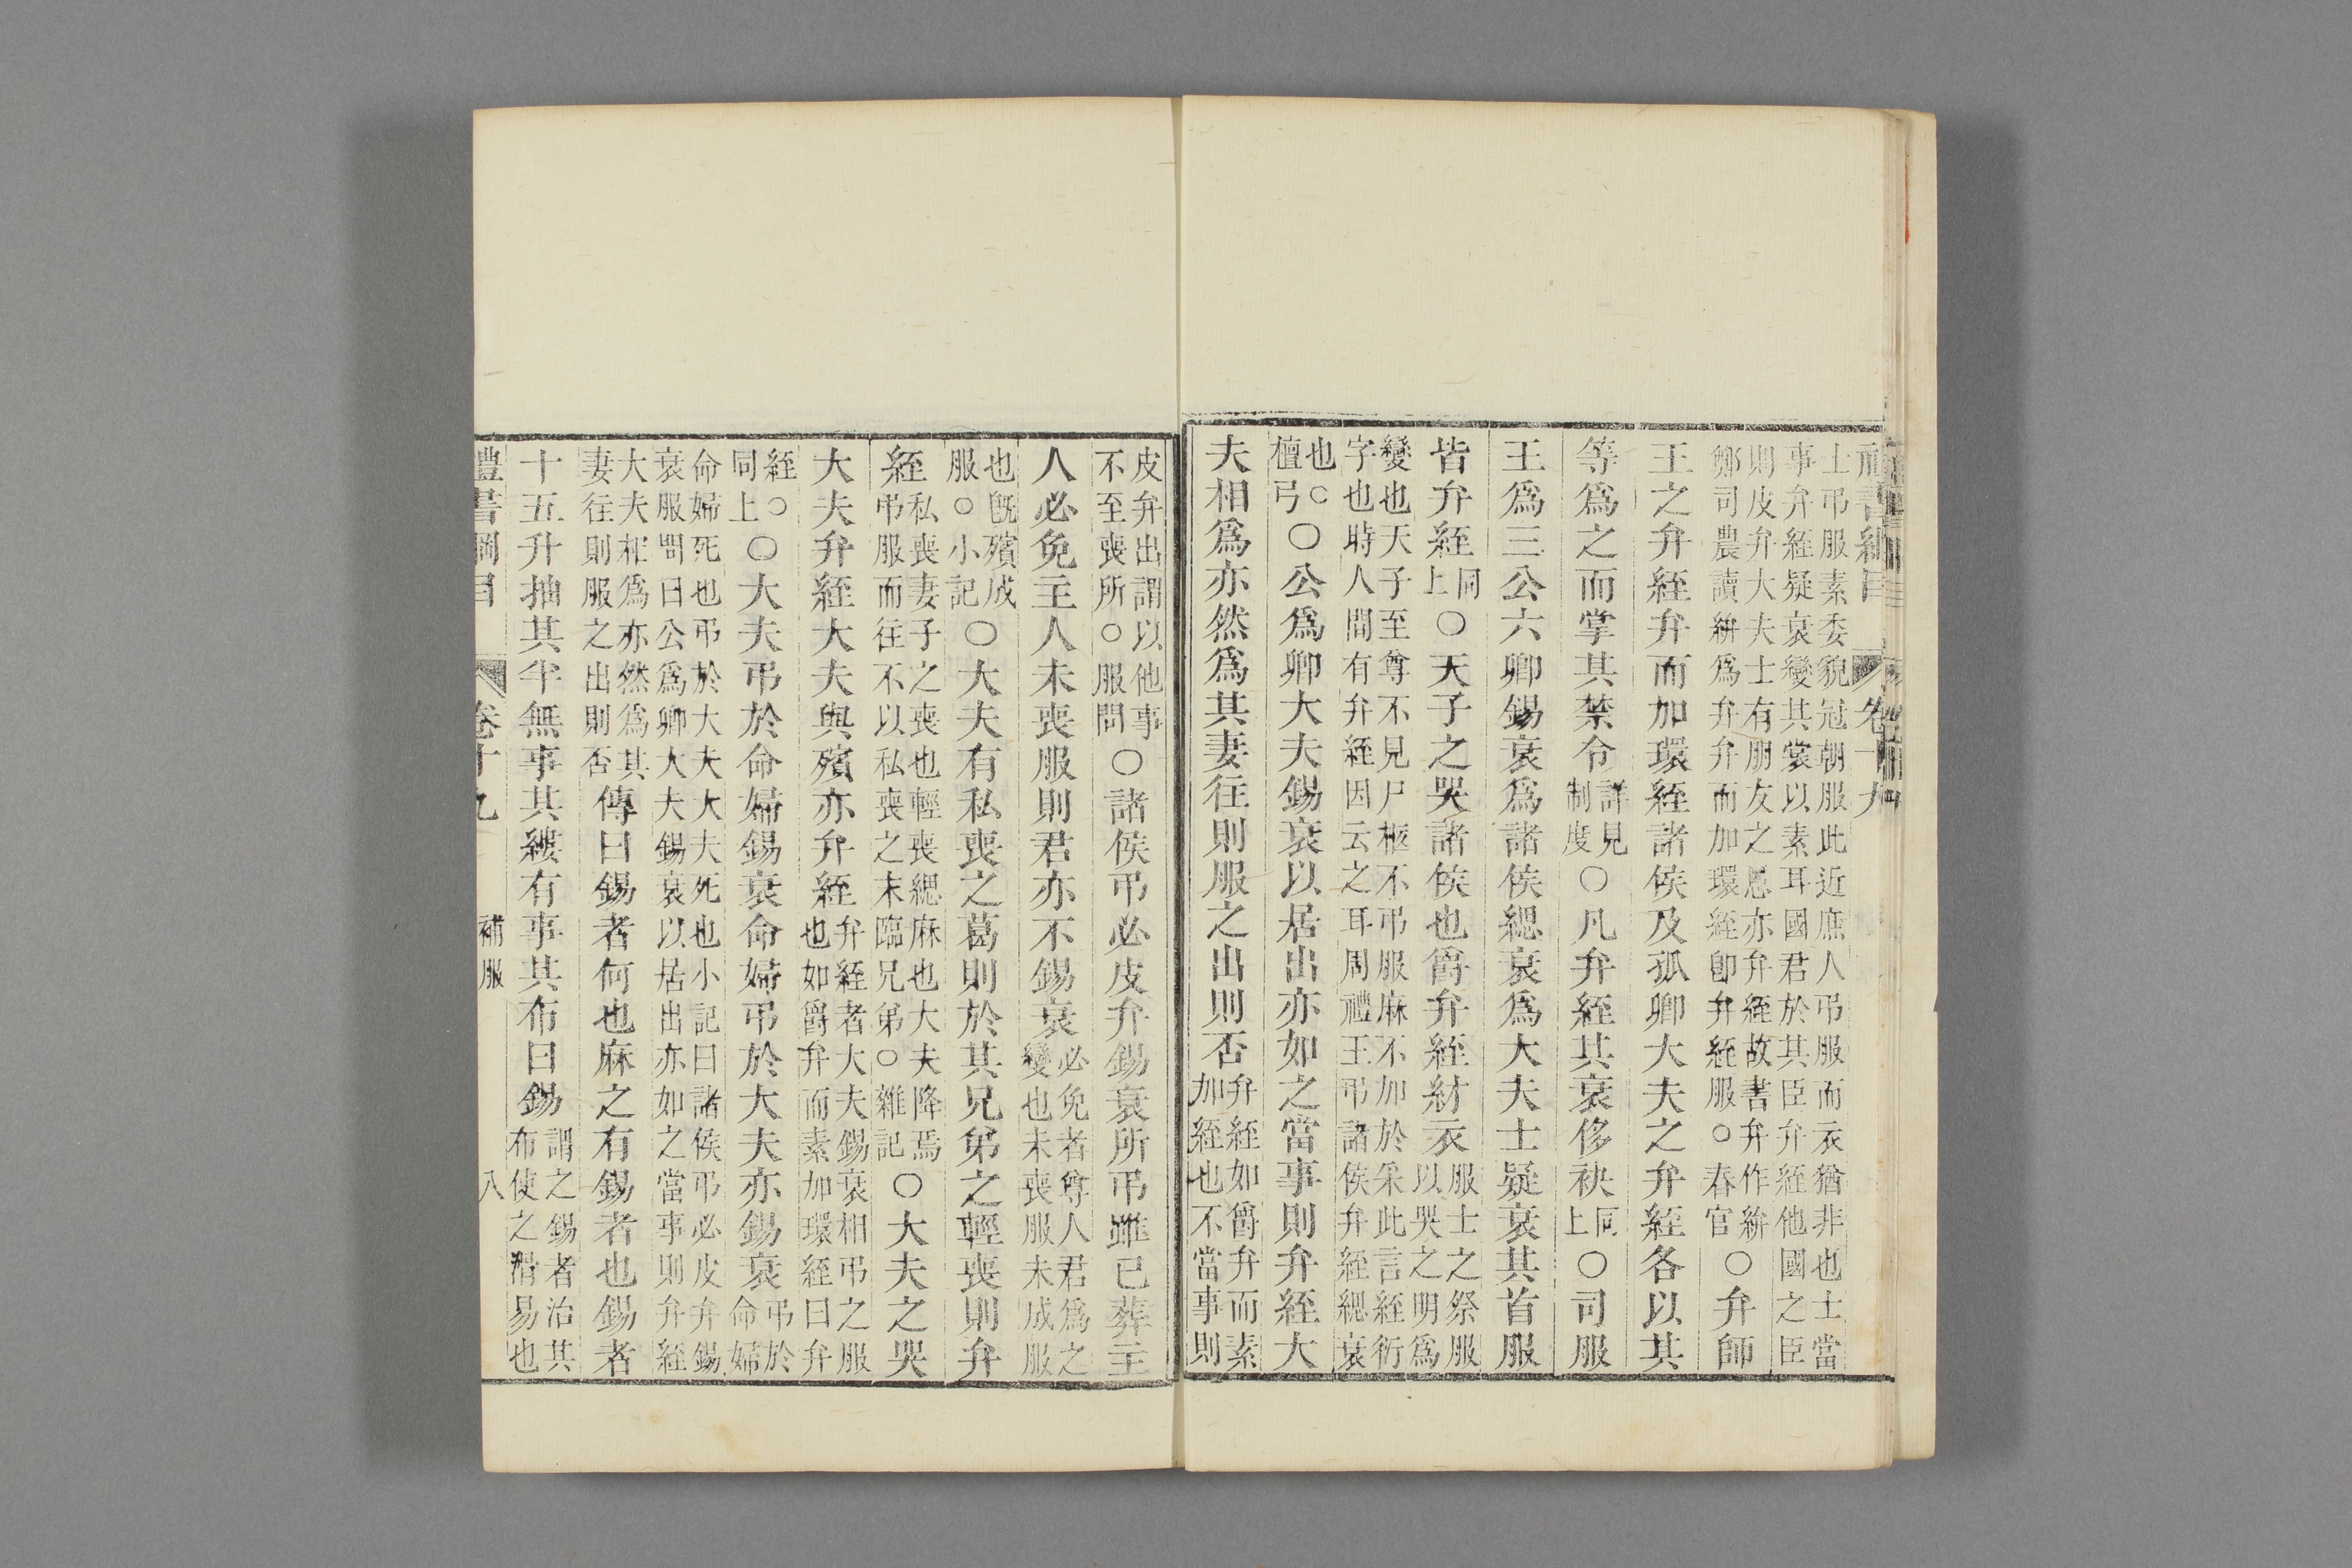 禮書綱目　卷十九
士弔服素委貌冠朝服此近庶人弔服而衣猶非也士當
事弁絰疑衰變其裳以素耳國君於其臣弁絰他國之臣
則皮弁大夫士有朋友之恩亦弁絰故書弁作絣
鄭司農讀絣爲弁弁而加環絰卽弁絰服○春官
○弁師
王之弁絰弁而加環絰諸侯及孤卿大夫之弁絰各以其
等爲之而掌其禁令詳見制度○凡弁絰其衰侈袂同上○司服
王爲三公六卿錫衰爲諸侯緦衰爲大夫士疑衰其首服
皆弁絰同上○天子之哭諸侯也爵弁絰紂衣服士之祭服以哭之明爲
變也天子至尊不見尸柩不弔服麻不加於采此言絰衍
字也時人間有弁絰因云之耳周禮王弔諸侯弁絰緦衰
也○檀弓○公爲卿大夫錫衰以居出亦如之當事則弁絰大
夫相爲亦然爲其妻往則服之出則否弁絰如爵弁而素加絰也不當事則
皮弁出謂以他事不至喪所○服問○諸侯弔必皮弁錫衰所弔雖已葬主
人必免主人未喪服則君亦不錫衰必免者尊人君爲之變也未喪服未成服
也旣殯成服○小記○大夫有私喪之葛則於其兄弟之輕喪則弁
絰私喪妻子之喪也輕喪緦麻也大夫降焉弔服而往不以私喪之末臨兄弟○雜記○大夫之哭
大夫弁絰大夫與殯亦弁絰弁絰者大夫錫衰相弔之服也如爵弁而素加環絰曰弁
絰○同上○大夫弔於命婦錫衰命婦弔於大夫亦錫衰弔於命婦
命婦死也弔於大夫大夫死也小記曰諸侯弔必皮弁錫
衰服問曰公爲卿大夫錫衰以居出亦如之當事則弁絰
大夫相爲亦然爲其妻往則服之出則否傳曰錫者何也麻之有錫者也錫者
十五升抽其半無事其縷有事其布曰錫謂之錫者治其布使之滑易也
禮書綱目　卷十九　補服　八